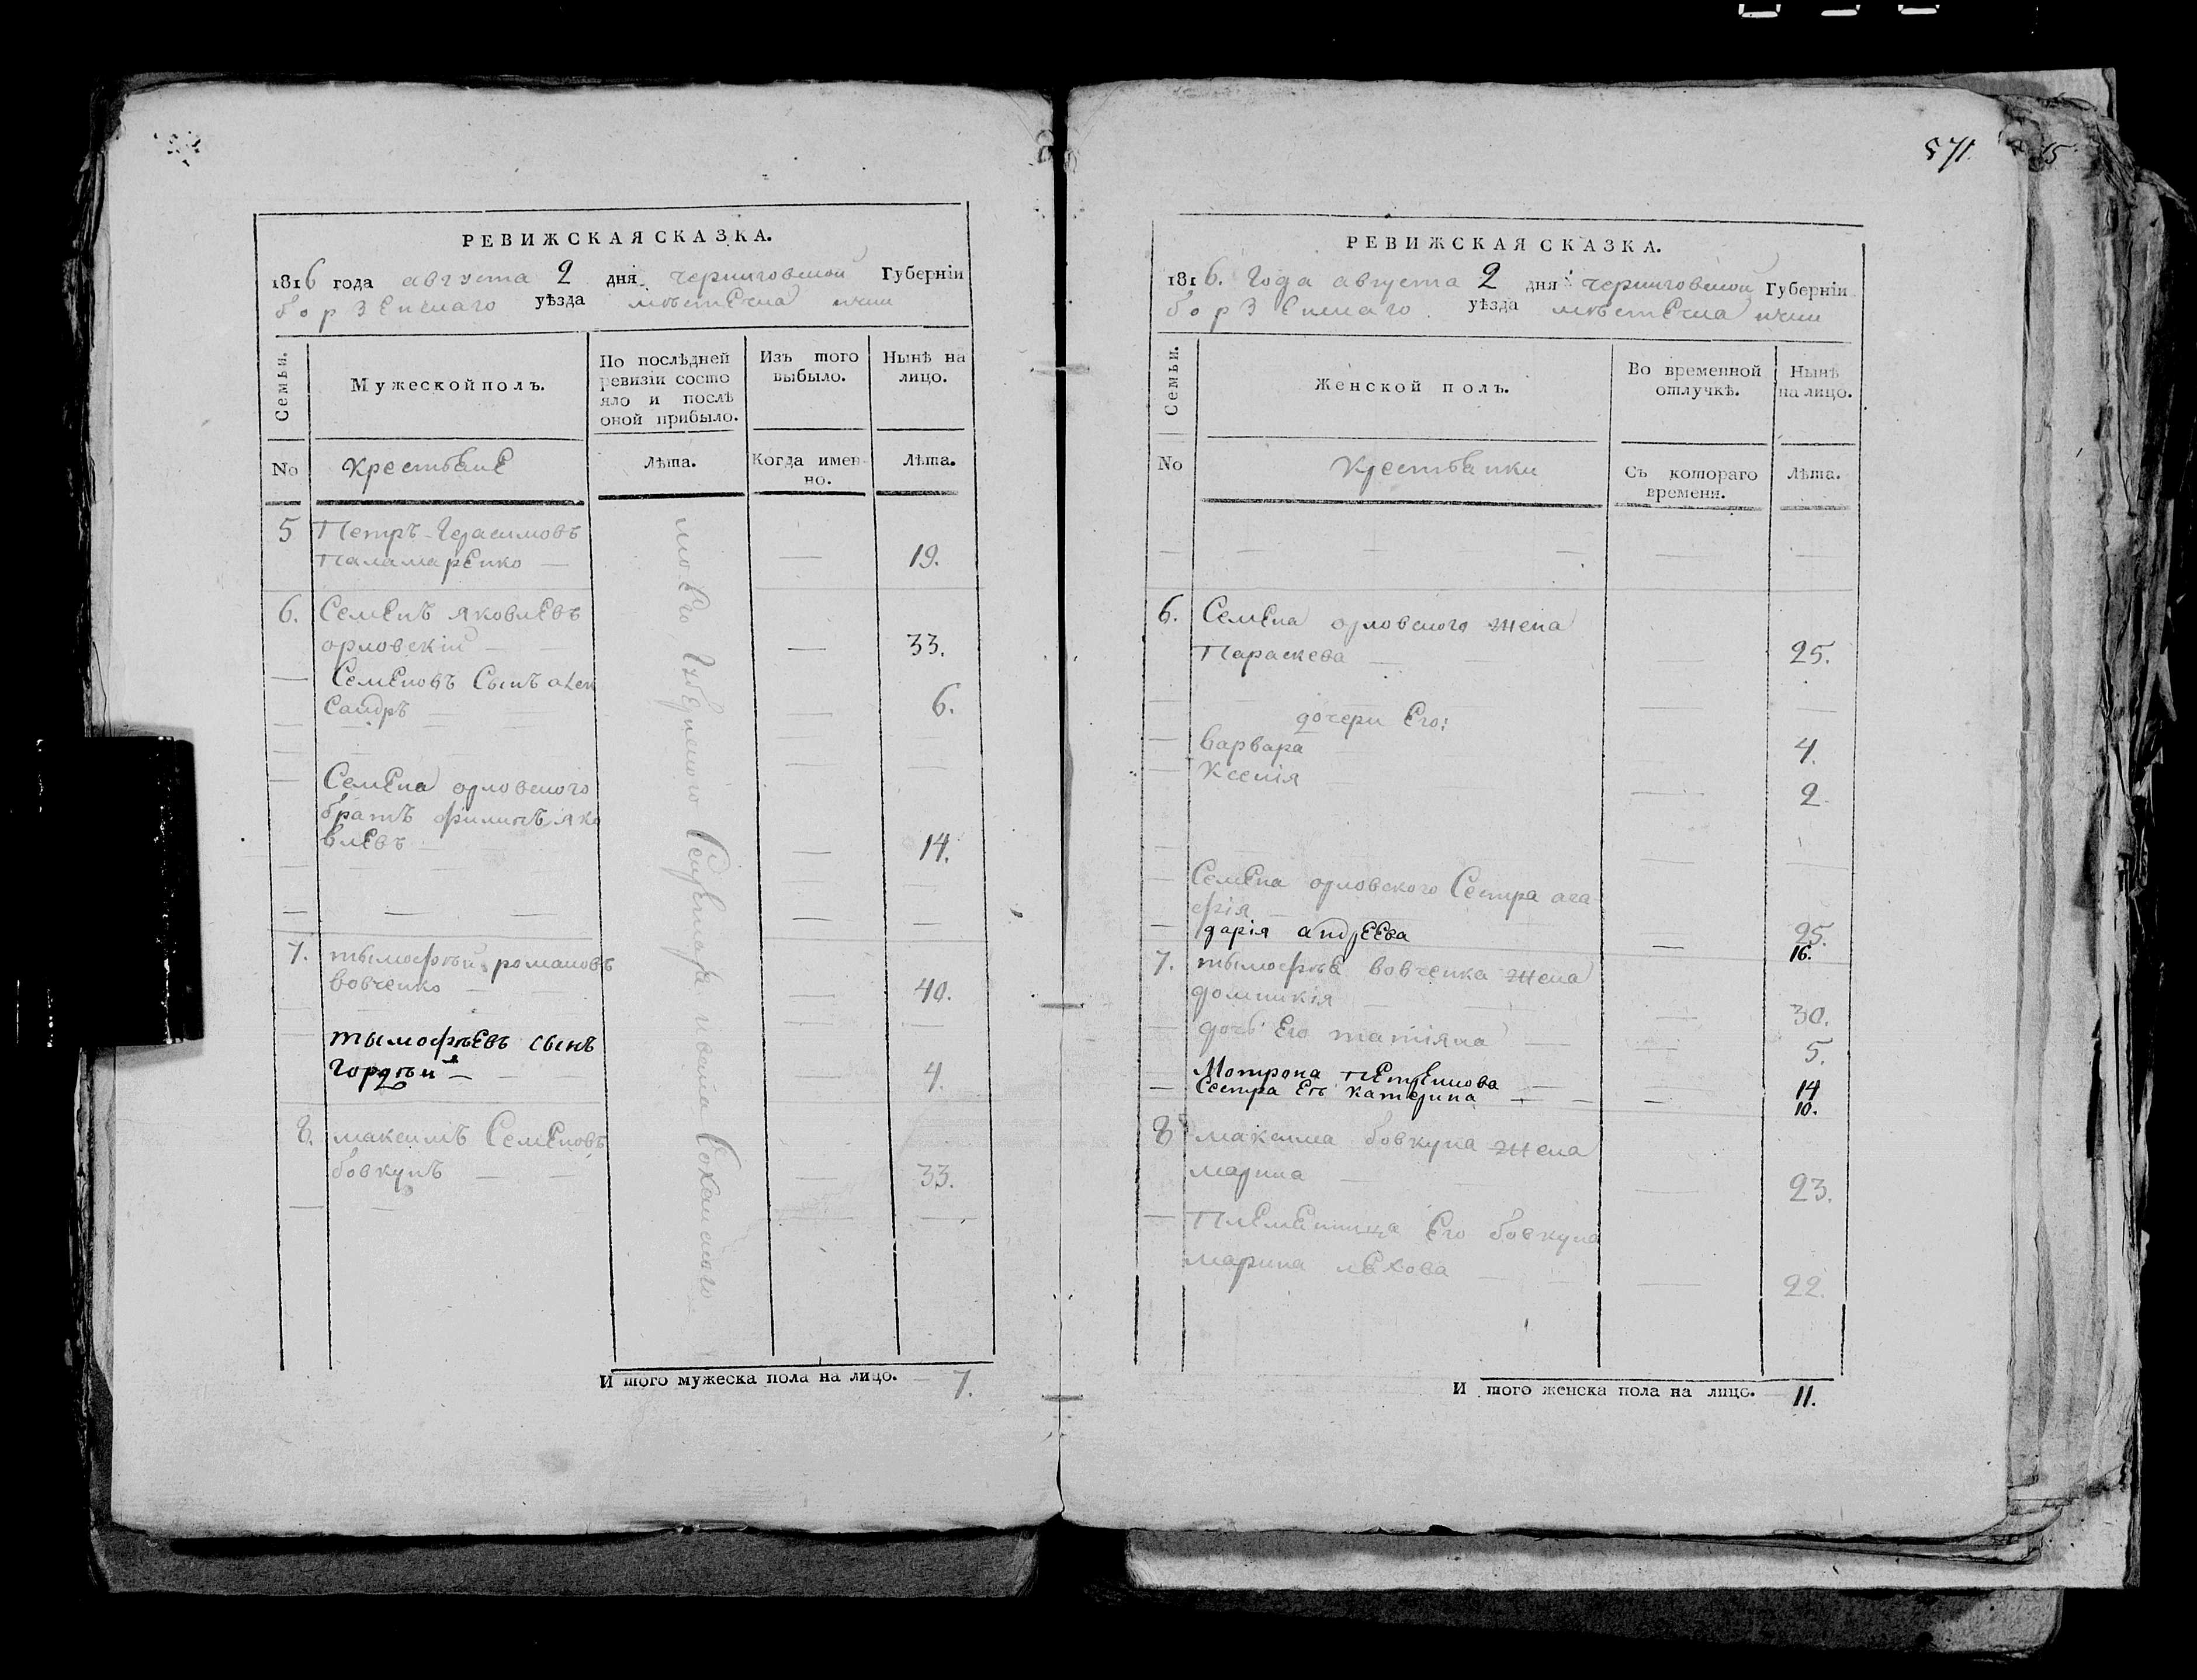 РЕВИЖСКАЯ СКАЗКА.
1816 года августа 2 дня черниговской Губерніи
борзенскаго уѣзда мѣстечка ични
Семьи.
Мужеской полъ.
По послѣдней
ревизіи состо
яло и послѣ
оной прибыло.
Изъ того
выбыло.
Нынѣ на
лицо.
No
крестьяне
Лѣта.
Когда имен-
но.
Лѣта.
5 Петръ Герасимовъ
Паламаренко — 19.
6. Семенъ яковлевъ
орловскій — 33.
Семеновъ Сынъ алек
сандръ — 6.
Семена орловского
братъ филипъ яко
влевъ — 14.
7. тымофѣй романовъ
вовченко — 40.
тымофѣевъ сынъ
Гордѣй — 4.
8. максимъ Семеновъ
бовкунъ — 33.
Сохацкого
И того мужеска пола на лицо. 7.
571.
15
РЕВИЖСКАЯ СКАЗКА.
1816. Года августа 2 дня черниговской Губерніи
борзенскаго уѣзда мѣстечка ични
Семьи.
Женской полъ.
Во временной
отлучкѣ.
Нынѣ
на лицо.
No
Крестьянки
Съ котораго
времени.
Лѣта.
6. Семена орловского жена
Параскева — 25.
дочери Его:
варвара 4.
Ксенія 2.
Семена орловского Сестра ага
фія — 25.
дарія андреева 16.
7. тымофѣя вовченка жена
домникія — 30.
дочь Его татіяна — 5.
Мотрона петренкова — 14
Сестра Еъ катерина — 10.
8 максима бовкуна жена
марина — 23.
Племенница Его бовкуна
марина ляхова — 22.
И того женска пола на лицо. 11.